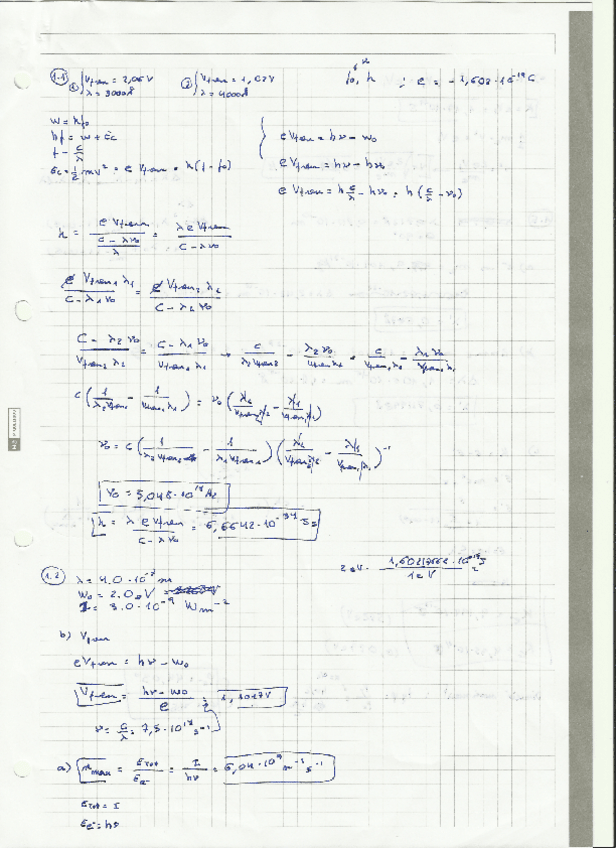 1.1 ① Vfren = 2,05V ② Vfren = 1,03V
λ = 3000Å λ = 4000Å
ν₀, h ; e = -1,602·10⁻¹⁹C
W = hf₀
hf = W + Ec
f = c/λ
Ec = 1/2 mv² = e Vfren = h(f - f₀)
e Vfren = hν - W₀
e Vfren = hν - hν₀
e Vfren = h c/λ - hν₀ = h(c/λ - ν₀)
h = e Vfren / ((c - λν₀)/λ) = λ e Vfren / (c - λν₀)
e Vfren₁ λ₁ / (c - λ₁ν₀) = e Vfren₂ λ₂ / (c - λ₂ν₀)
(c - λ₂ν₀) / (Vfren₂ λ₂) = (c - λ₁ν₀) / (Vfren₁ λ₁) → c/(λ₂Vfren₂) - λ₂ν₀/(Vfren₂λ₂) = c/(Vfren₁λ₁) - λ₁ν₀/(Vfren₁λ₁)
c (1/(λ₂Vfren₂) - 1/(Vfren₁λ₁)) = ν₀ (λ₂/(Vfren₂λ₂) - λ₁/(Vfren₁λ₁))
ν₀ = c (1/(λ₂Vfren₂) - 1/(λ₁Vfren₁)) (λ₂/(Vfren₂λ₂) - λ₁/(Vfren₁λ₁))⁻¹
ν₀ = 5,048·10¹⁴Hz
h = λ e Vfren / (c - λν₀) = 6,6642·10⁻³⁴ Js
1.2 λ = 4.0·10⁻⁷ m
W₀ = 2.0eV
I = 3.0·10⁻⁹ Wm⁻²
b) Vfren
eVfren = hν - W₀
Vfren = (hν - W₀)/e = 1,1017V
ν = c/λ = 7,5·10¹⁴ s⁻¹
a) = I/hν = 6,04·10⁹ m⁻² s⁻¹
Etot = I
Ee⁻ = hν